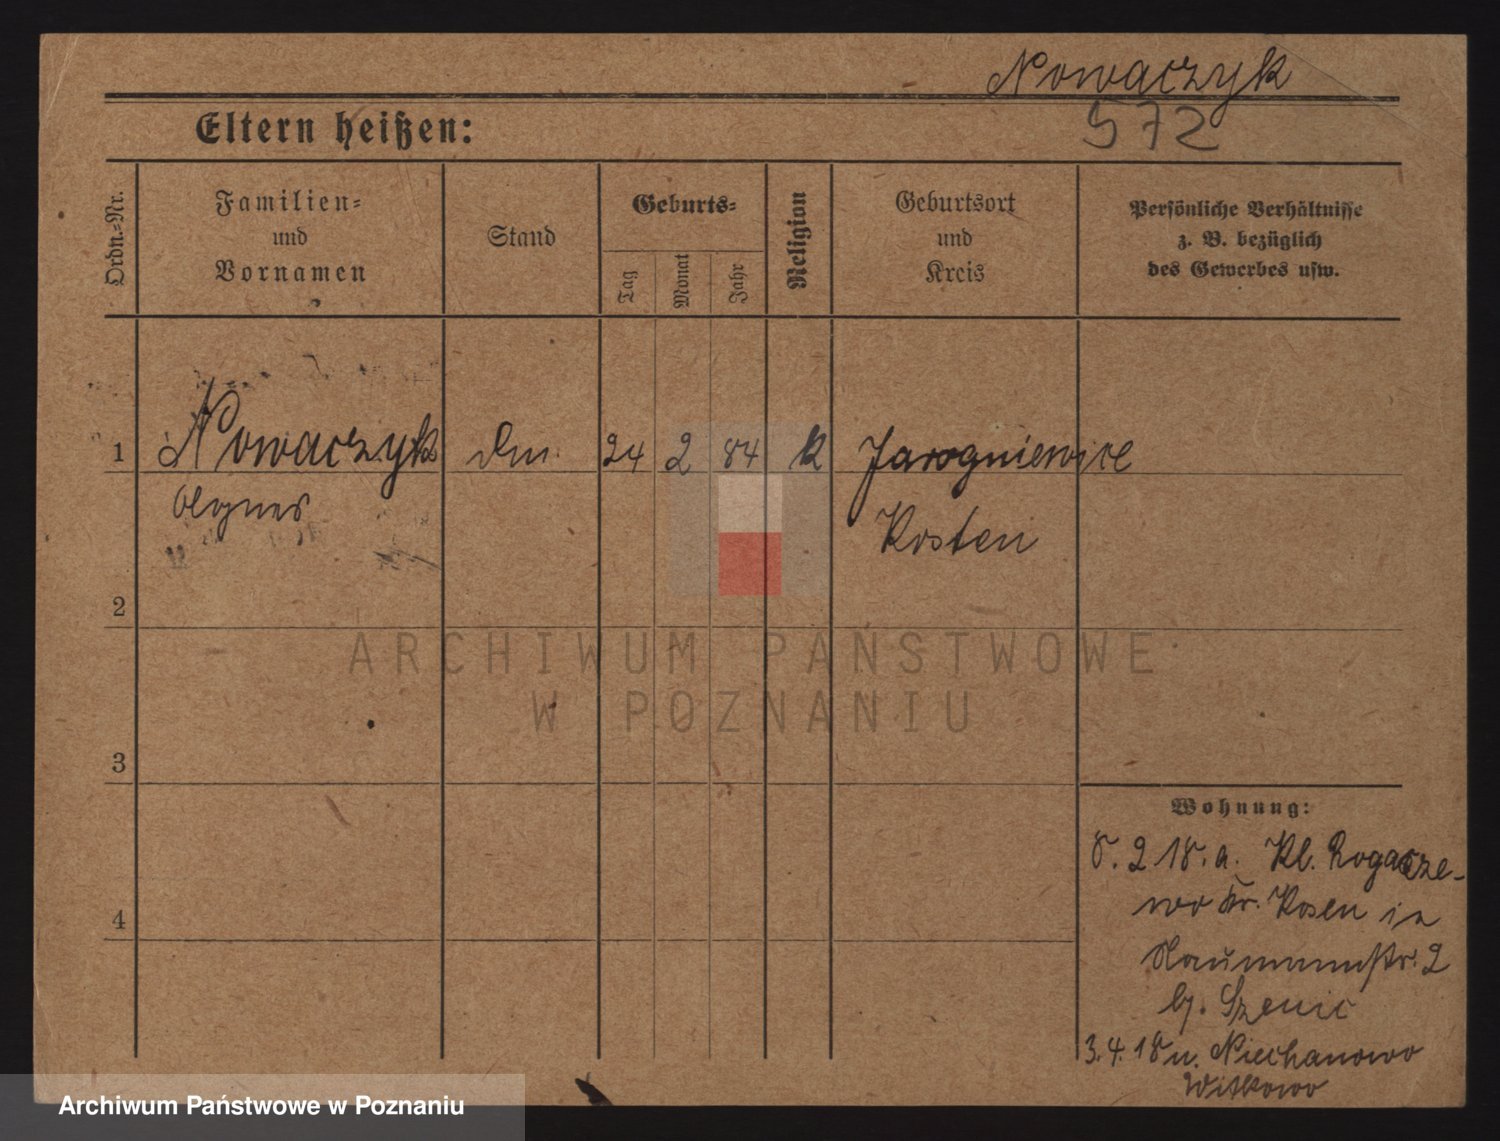 Nowaczyk
572
Eltern heißen:
Ordn.-Nr.
Familien-
und
Vornamen
Stand
Geburts-
Tag
Monat
Jahr
Religion
Geburtsort
und
Kreis
Persönliche Verhältnisse
z. B. bezüglich
des Gewerbes usw.
1 Nowaczyk 24 2 84 k Jarogniewice
Agnes Kosten
2
3
4
Wohnung:
8. 2 18. a. Kl. Rogacze-
wo Kr. Kosten in
Naumannstr. 2
b/.
3. 4. 18 n. Niechanowo
Witkowo
ARCHIWUM PAŃSTWOWE
W POZNANIU
Archiwum Państwowe w Poznaniu